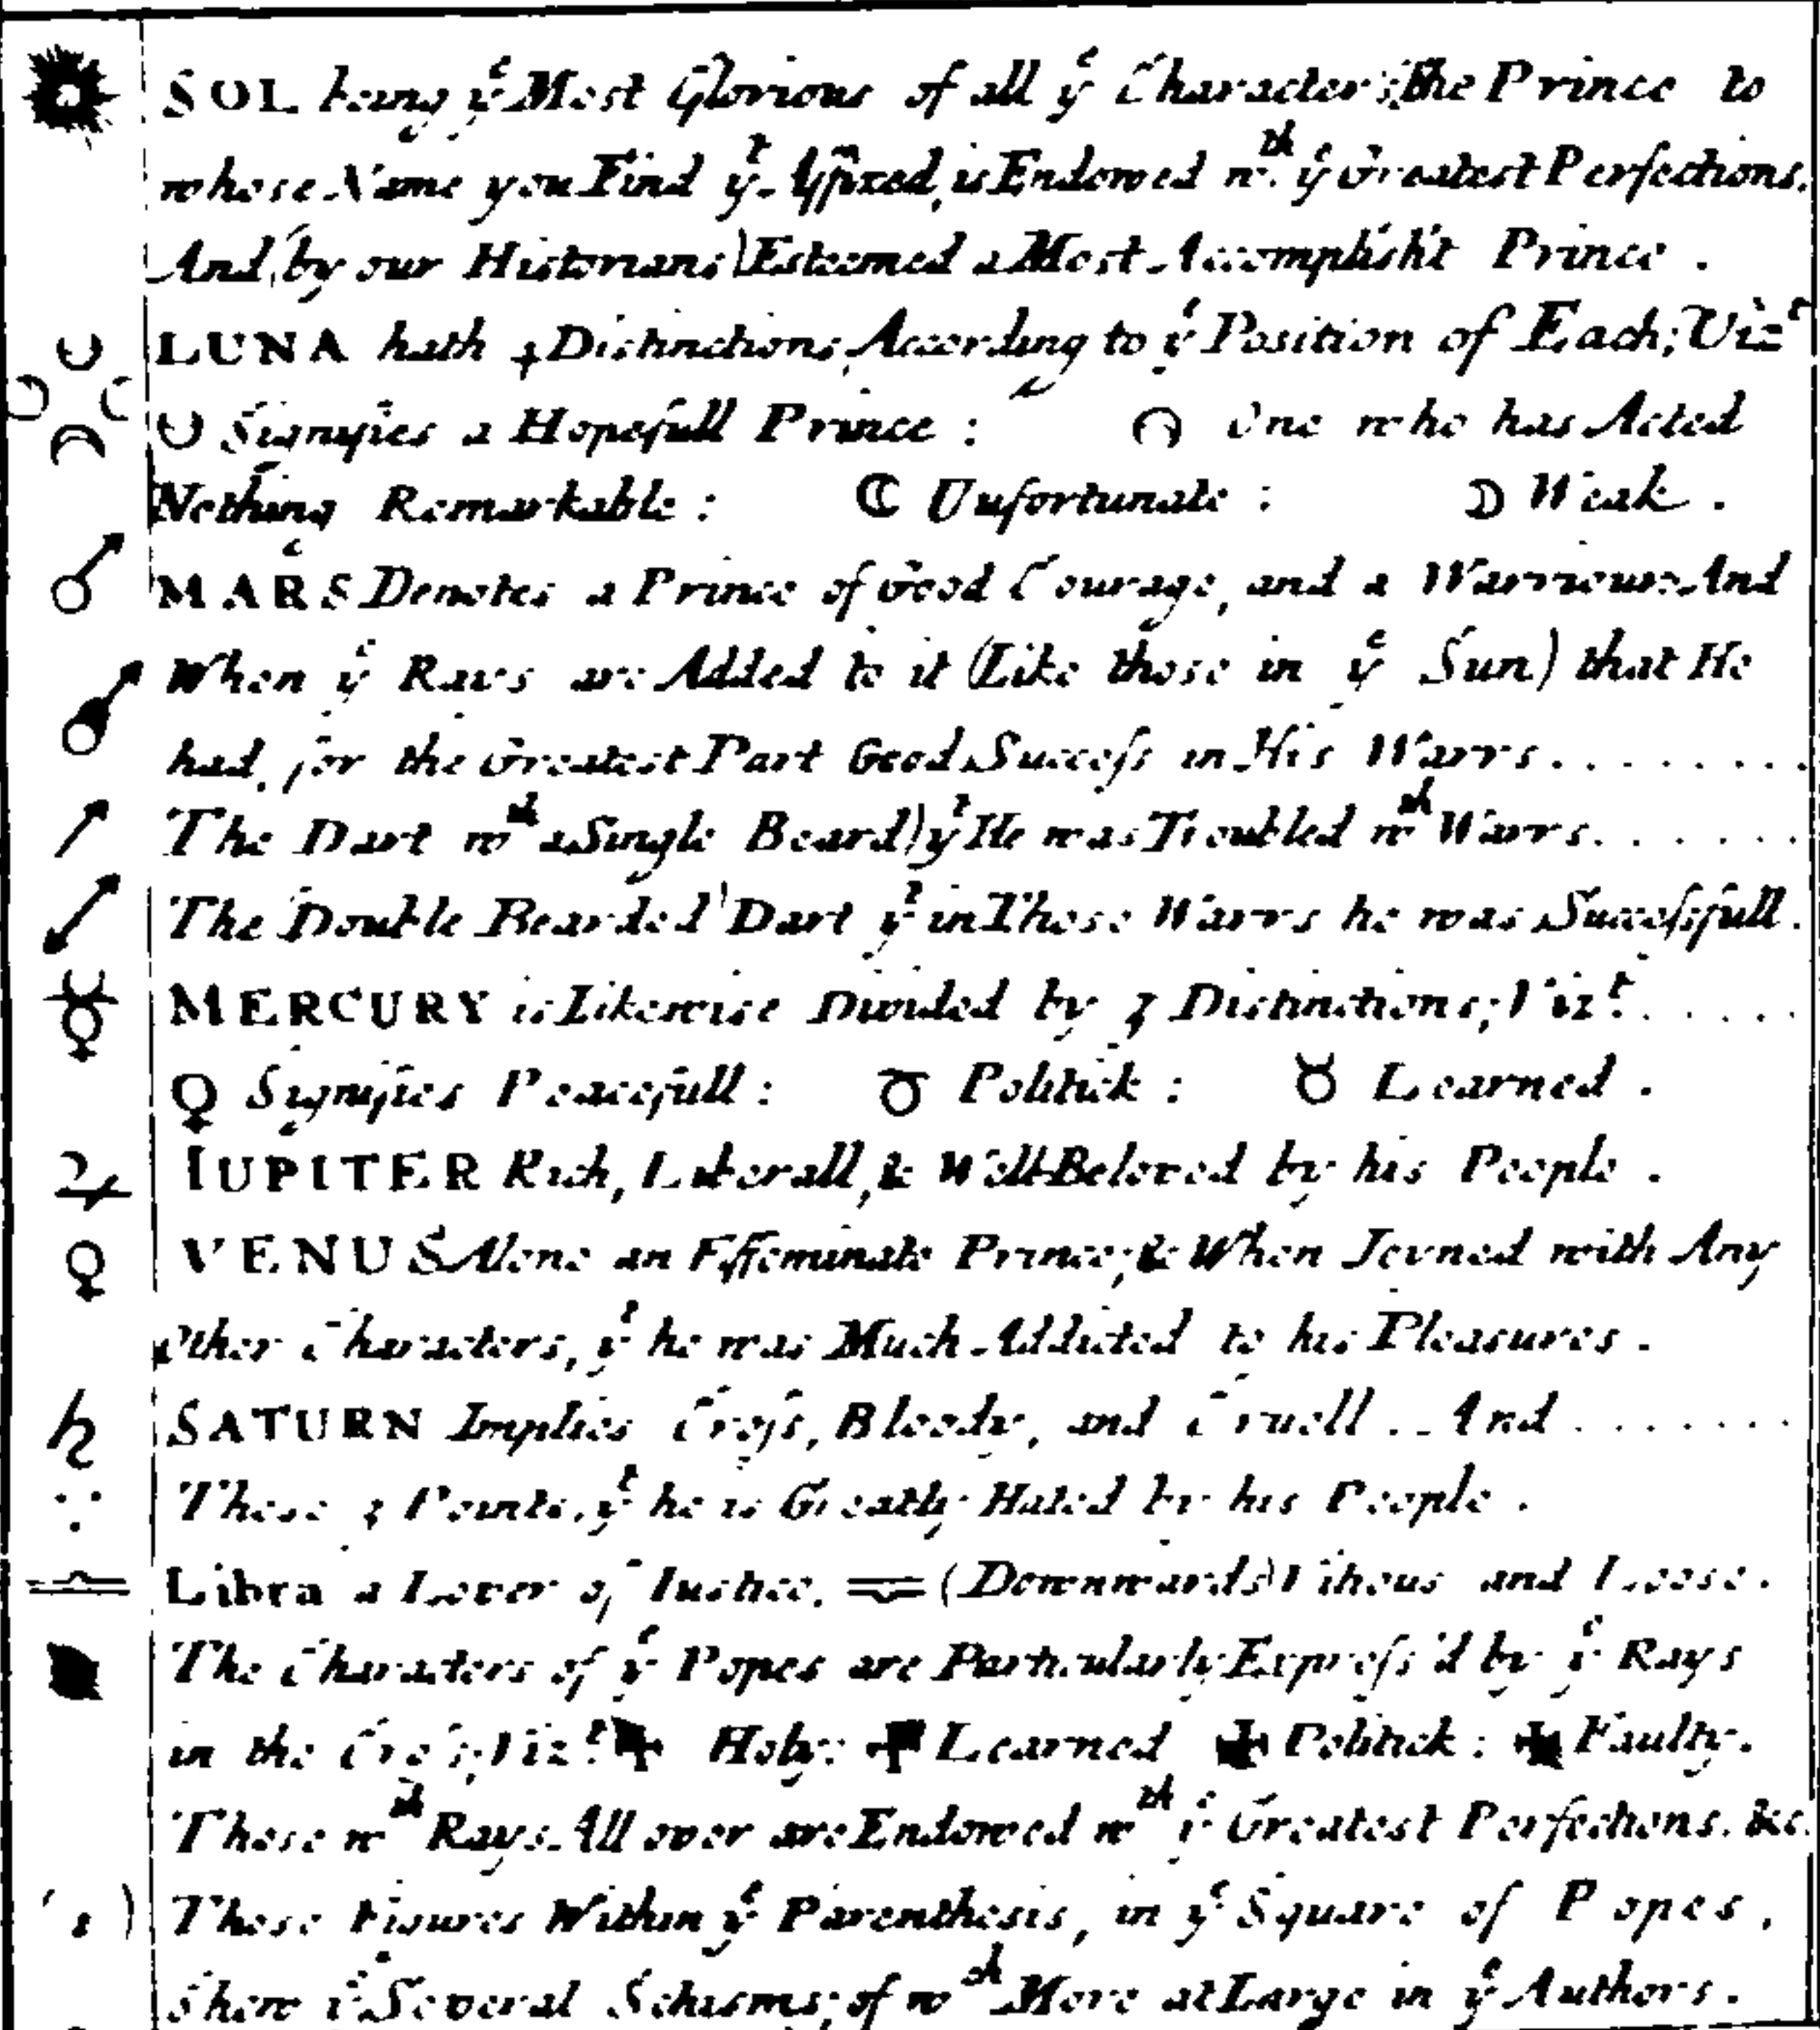 SOL being yᵉ Most Glorious of all yᵉ Characters, The Prince to
whose Name you Find yᵗ Affixed, is Endowed wᵗʰ yᵉ Greatest Perfections.
And, (by our Historians) Esteemed a Most Accomplish't Prince.
LUNA hath 4 Distinctions, According to yᵉ Position of Each; Vizᵗ
Signifies a Hopefull Prince: One who has Acted
Nothing Remarkable: ☾ Unfortunate: ☽ Weak.
♂ MARS Denotes a Prince of Good Courage, and a Warriour: And
When yᵉ Rays are Added to it (Like those in yᵉ Sun) that He
had, for the Greatest Part Good Succeſs in His Warrs........
The Dart wᵗʰ a Single Beard) yᵗ He was Troubled wᵗʰ Warrs......
The Double Bearded Dart yᵗ in Those Warrs he was Succeſsfull.
☿ MERCURY is Likewise Divided by 3 Distinctions; Vizᵗ.....
♀ Signifies Peacefull: Politick: ♉ Learned.
♃ IUPITER Rich, Liberall, & Well-Beloved by his People.
♀ VENUS Alone an Effeminate Prince; & When Joyned with Any
Other Characters, yᵗ he was Much Addicted to his Pleasures.
♄ SATURN Implies Croſs, Bloody, and Cruell.. And.......
These 3 Points, yᵗ he is Greatly Hated by his People.
♎ Libra a Lover of Iustice. (Downwards) Vitious and Loose.
The Characters of yᵉ Popes are Particularly Expreſs'd by yᵉ Rays
in the Croſs, Vizᵗ Holy: Learned Politick: Faulty.
Those wᵗʰ Rays All over are Endowed wᵗʰ yᵉ Greatest Perfections. &c.
These Figures Within yᵉ Parenthesis, in yᵉ Square of Popes,
Shew yᵉ Several Schisms; of wᶜʰ More at Large in yᵉ Authors.